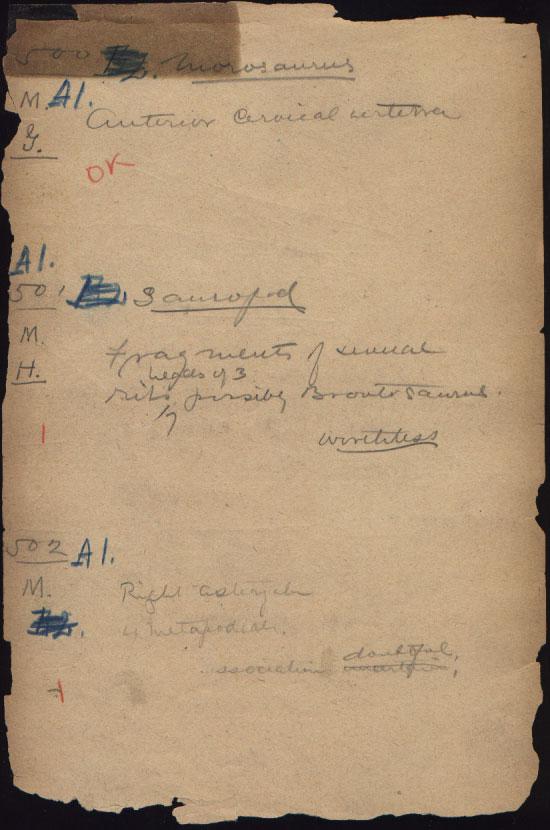 500 Morosaurus
M. Al.
G. Anterior Cervical vertebra
OK
Al.
501 Sauropod
M.
H. Fragments of several
heads of 3
ribs possibly Brontosaurus.
worthless
502 Al.
M. Right astragalus
4 metapodials.
association doubtful,